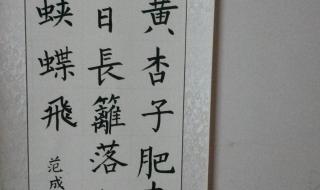 黄杏子肥
日長籬落
蛺蝶飛
范成